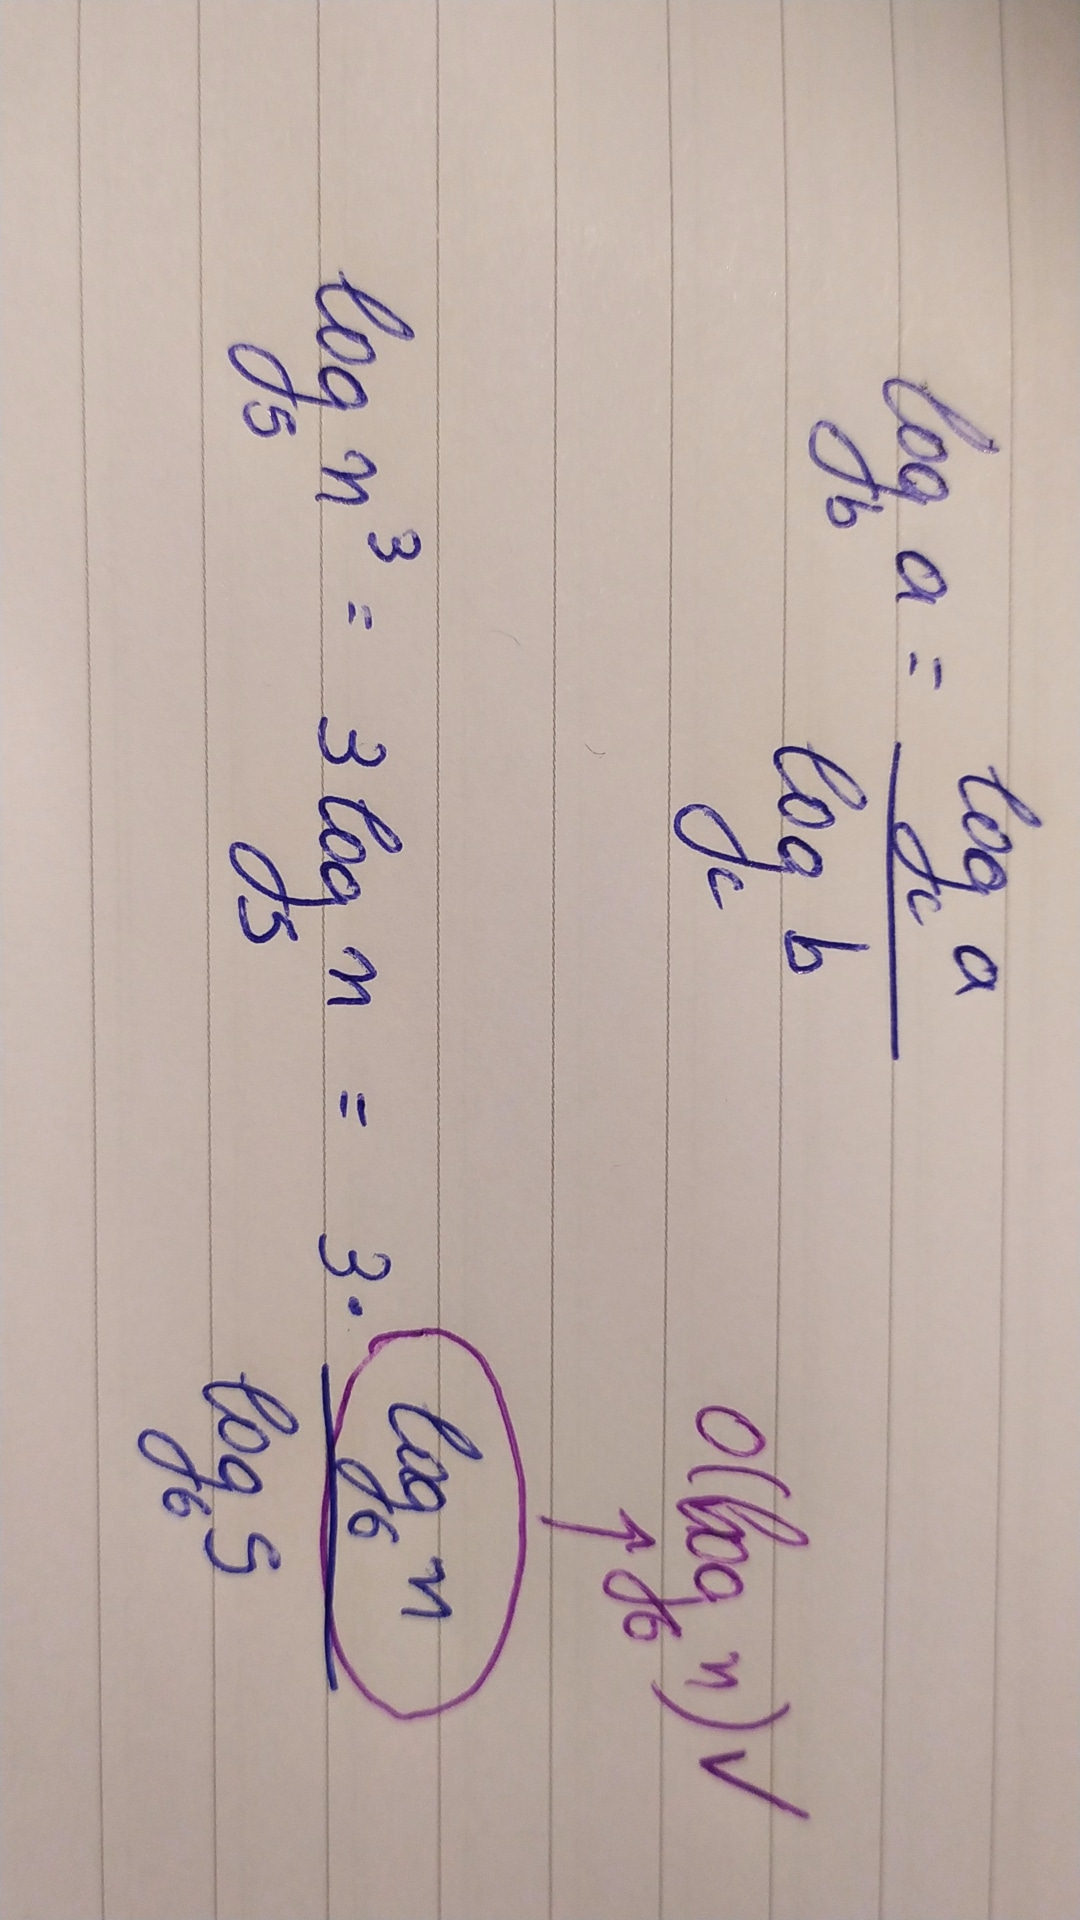 log_b a = log_c a / log_c b
O(log_6 n) ✓
↑
log_5 n^3 = 3 log_5 n = 3 · log_6 n / log_6 5